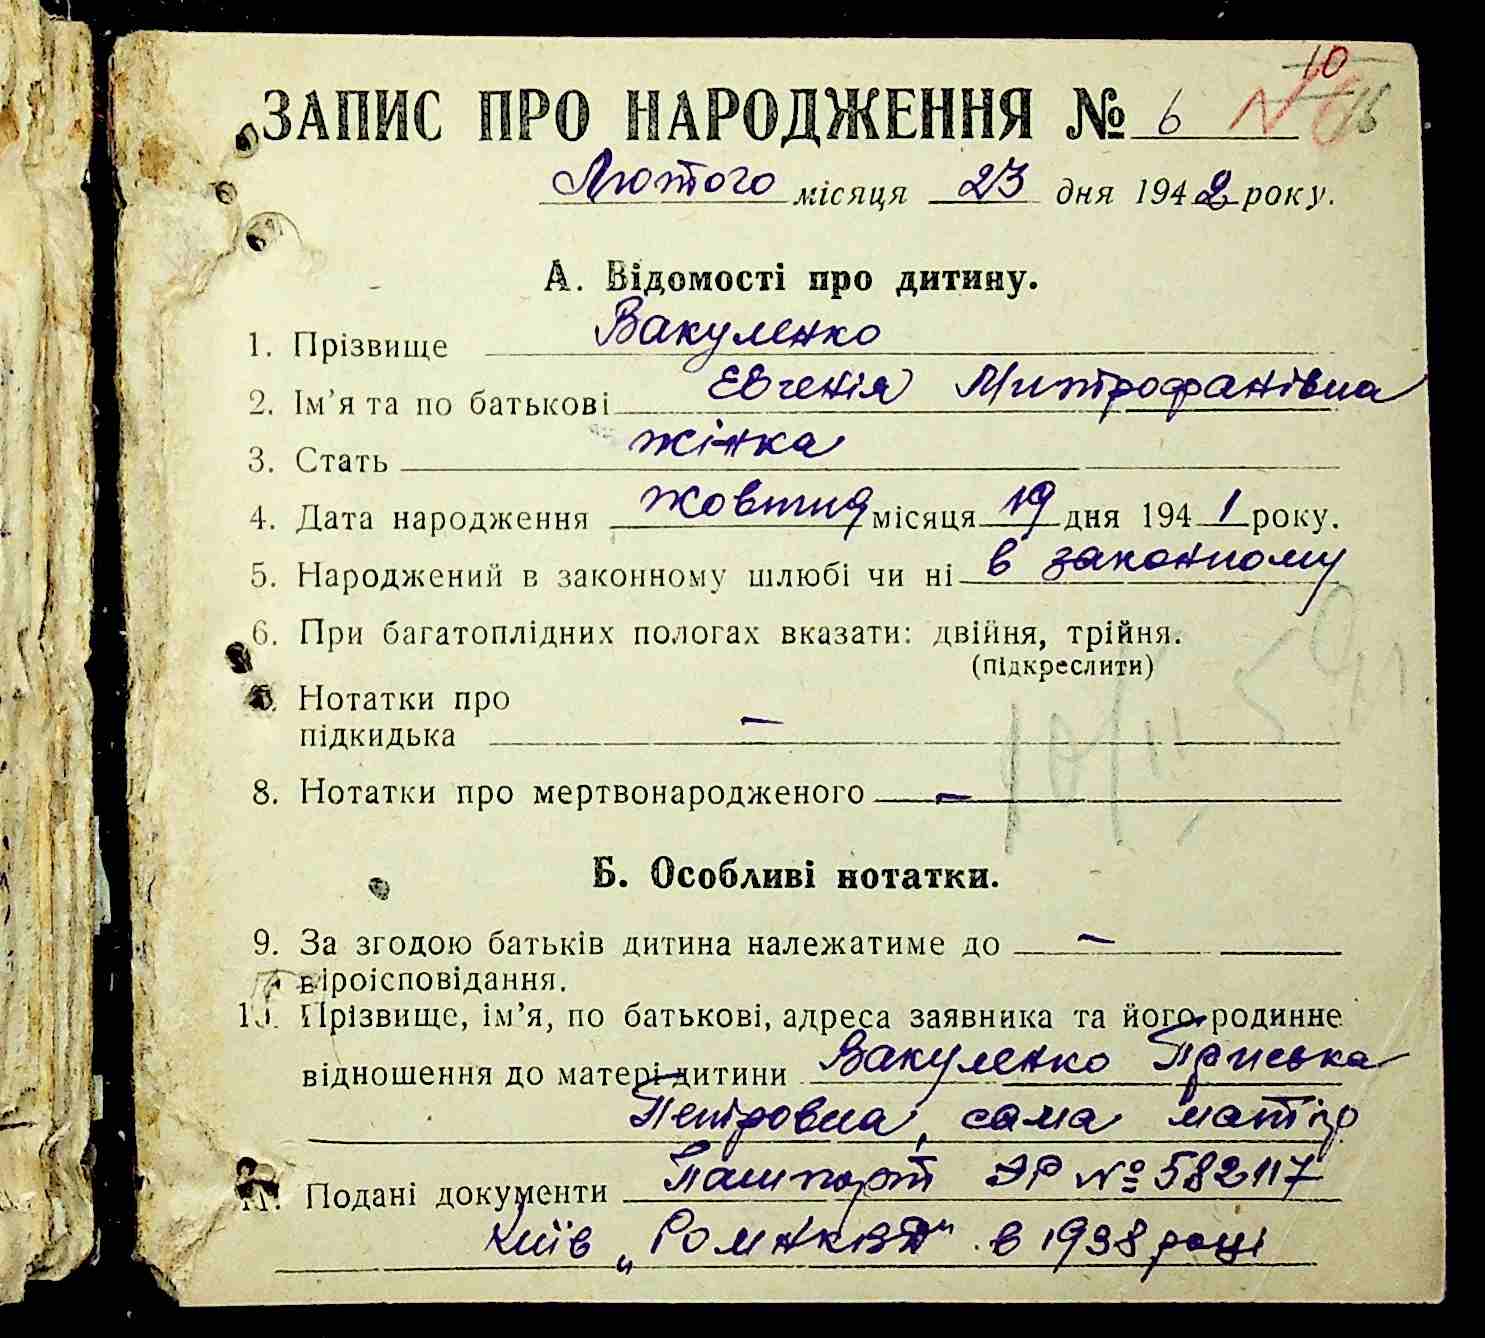 10
ЗАПИС ПРО НАРОДЖЕННЯ № 6
Лютого місяця 23 дня 1942 року.
А. Відомості про дитину.
1. Прізвище Вакуленко
2. Ім'я та по батькові Евгенія Митрофанівна
3. Стать жінка
4. Дата народження жовтня місяця 19 дня 1941 року.
5. Народжений в законному шлюбі чи ні в законному
6. При багатоплідних пологах вказати: двійня, трійня.
(підкреслити)
Нотатки про
підкидька –
8. Нотатки про мертвонародженого –
Б. Особливі нотатки.
9. За згодою батьків дитина належатиме до –
віроісповідання.
10. Прізвище, ім'я, по батькові, адреса заявника та його родинне
відношення до матері дитини Вакуленко Приська
Петровна, сама матір
11. Подані документи Пашпорт ЭР № 582117
Київ в 1938 році